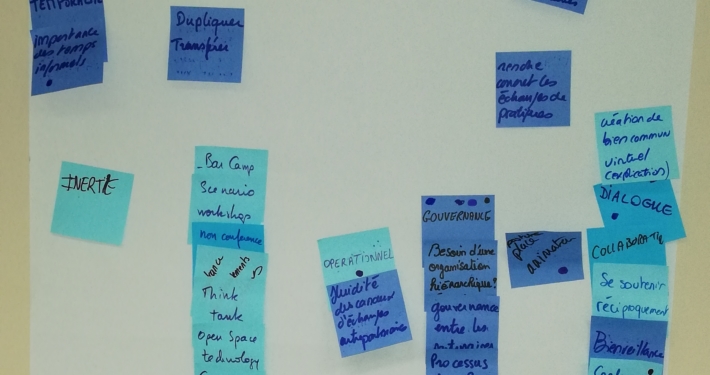 TEMPORALITÉ
importance
des temps
informels
Dupliquer
Transférer
rendre
concret les
échanges de
pratiques
création de
bien commun
virtuel
(explication)
DIALOGUE
COLLABORATIF
Se soutenir
réciproquement
Bienveillance
INERTIE
- Bar Camp
Scenario
workshop
non conférence
Think
tank
Open Space
technology
OPERATIONNEL
fluidité
des canaux
d'échanges
GOUVERNANCE
Besoin d'une
organisation
hiérarchique?
gouvernance
entre les
Processus
place
animateur